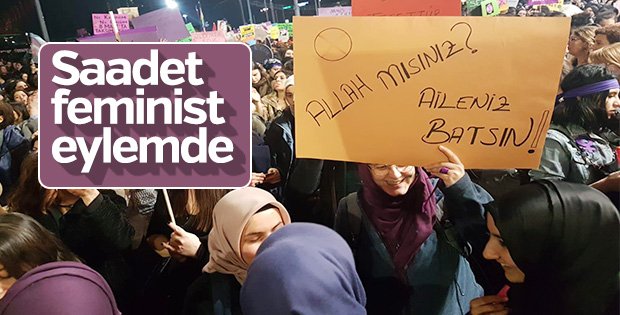 Saadet
feminist
eylemde
ALLAH MISINIZ?
AİLENİZ
BATSIN!!